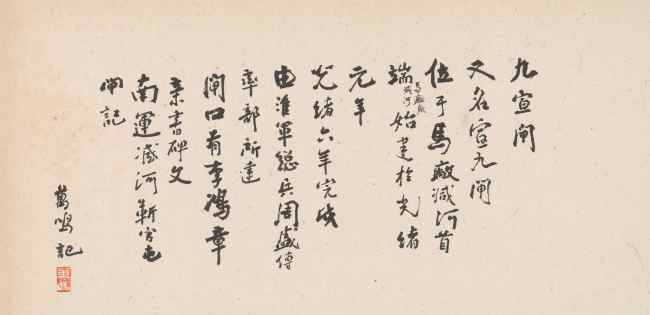 九宣閘
又名宣九閘
位于馬廠減河首
端始建於光緒
元年
光緒六年完成
由淮軍總兵周盛傳
率部所建
閘口有李鴻章
親書碑文
南運減河靳官屯
閘記
萬鳴記